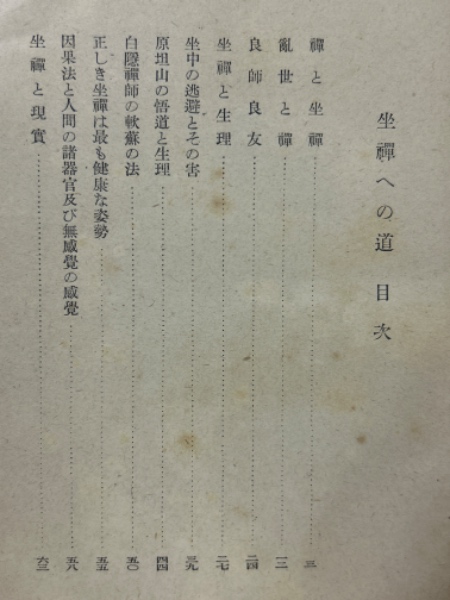 坐禪への道 目次
禪と坐禪……三
亂世と禪……一二
良師良友……二四
坐禪と生理……二七
坐中の逃避とその害……三九
原坦山の悟道と生理……四四
白隱禪師の軟蘇の法……五〇
正しき坐禪は最も健康な姿勢……五五
因果法と人間の諸器官及び無感覺の感覺……五八
坐禪と現實……六三